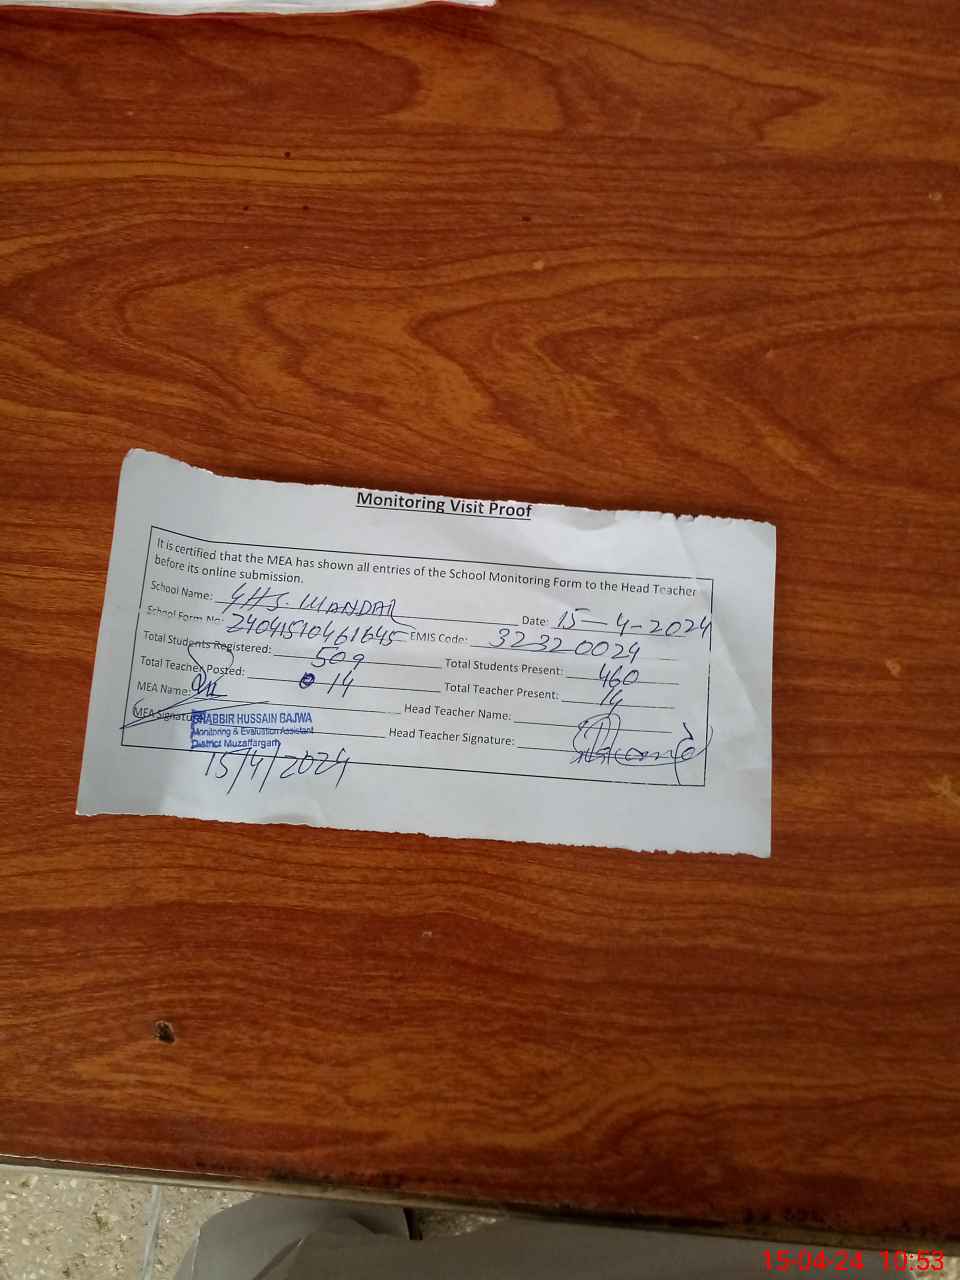 Monitoring Visit Proof
It is certified that the MEA has shown all entries of the School Monitoring Form to the Head Teacher
before its online submission.
School Name: GHS. MANDAL Date: 15-4-2024
School Form No: EMIS Code: 32320024
Total Students Registered: 509 Total Students Present: 460
Total Teacher Posted: 14 Total Teacher Present: 14
MEA Name: Head Teacher Name:
MEA Signature Head Teacher Signature:
SHABBIR HUSSAIN BAJWA
Monitoring & Evaluation Assistant
District Muzaffargarh
15/4/2024
15-04-24 10:53